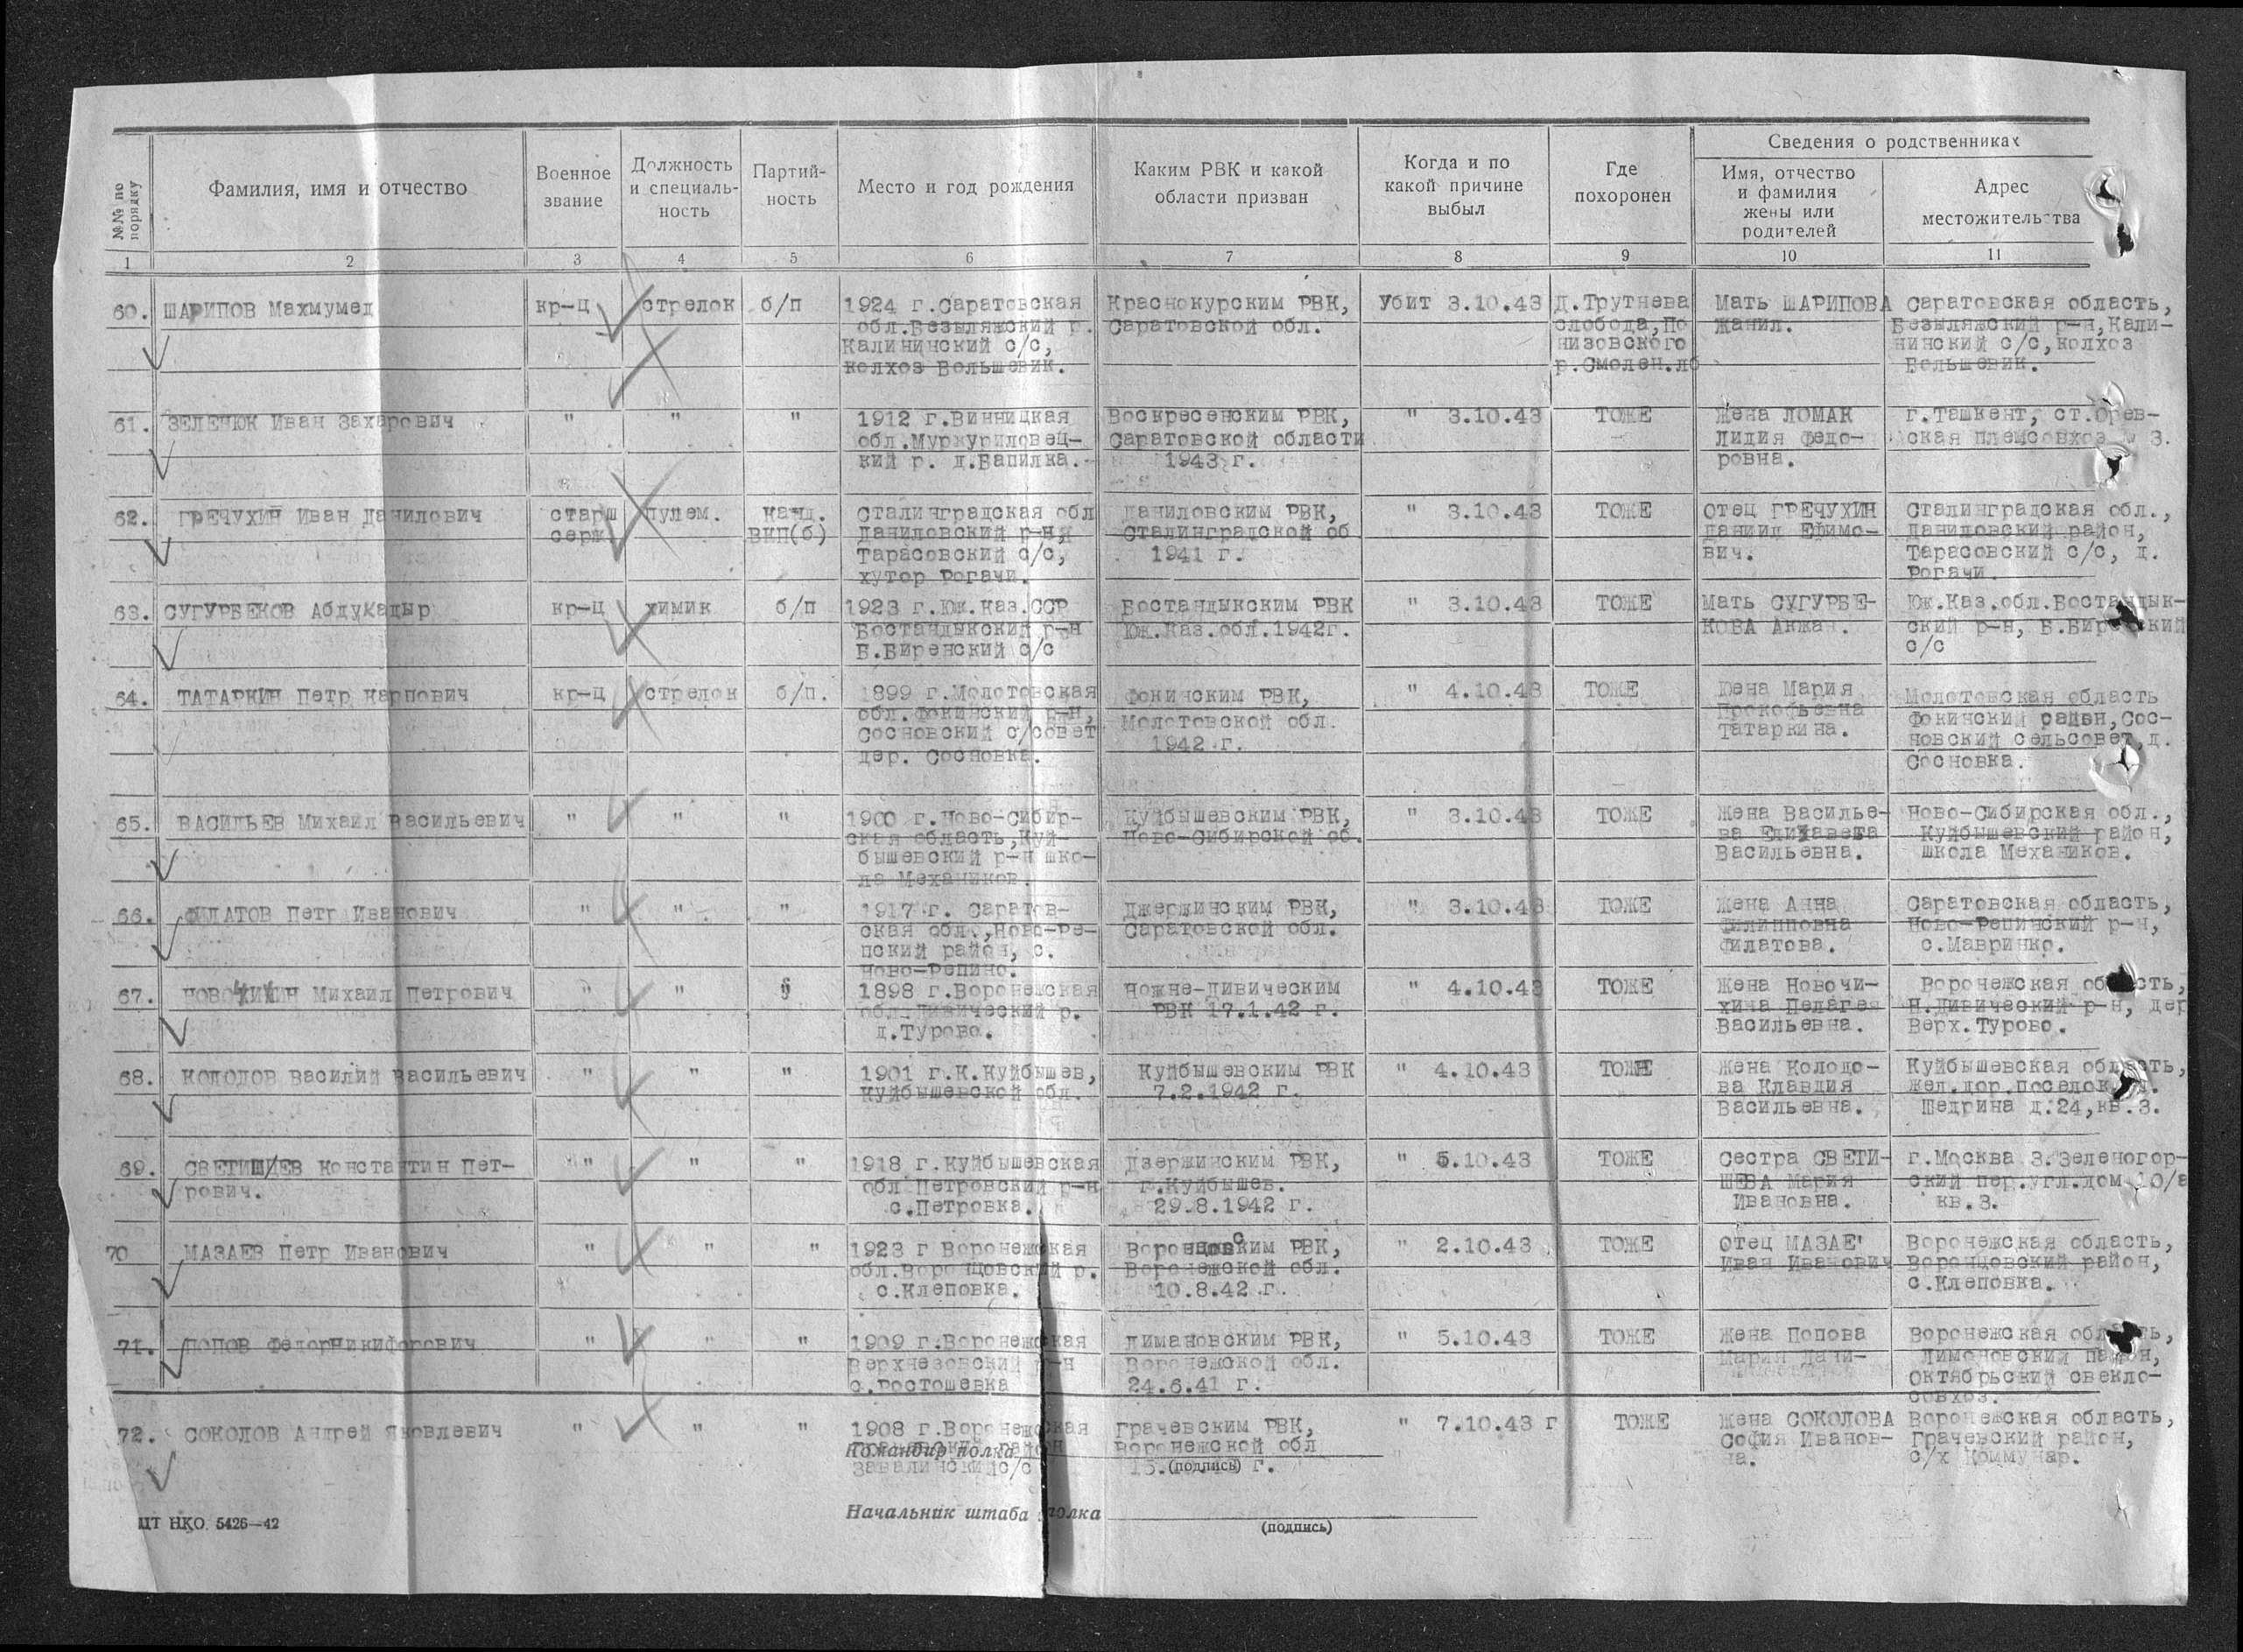 №№ по порядку
Фамилия, имя и отчество
Военное звание
Должность и специаль-ность
Партий-ность
Место и год рождения
Каким РВК и какой области призван
Когда и по какой причине выбыл
Где похоронен
Сведения о родственниках
Имя, отчество и фамилия жены или родителей
Адрес местожительства
1 2 3 4 5 6 7 8 9 10 11
60. ШАРИПОВ Махмумед кр-ц стрелок б/п 1924 г.Саратовская Краснокурским РВК, Убит 3.10.43 Д.Трутнева Мать ШАРИПОВА Саратовская область,
обл.Безыляжский р. Саратовской обл. слобода,По Жанил. Безыляжский р-н,Кали-
Калининский с/с, низовского нинский с/с,колхоз
колхоз Большевик. р.Смолен.об Большевик.
61. ЗЕЛЕНЮК Иван Захарович " " " 1912 г.Винницкая Воскресенским РВК, " 3.10.43 ТОЖЕ Жена ЛОМАК г.Ташкент, ст.
обл.Муркуриловец- Саратовской области Лидия Федо- ская племсовхоз 3.
кий р. д.Вапилка. 1943 г. ровна.
62. ГРЕЧУХИН Иван Данилович старш пулем. канд. Сталинградская обл Даниловским РВК, " 3.10.43 ТОЖЕ Отец ГРЕЧУХИН Сталинградская обл.,
серж ВКП(б) Даниловский р-н Сталинградской об Даниил Ефимо- Даниловский район,
Тарасовский с/с, 1941 г. вич. Тарасовский с/с, д.
хутор Рогачи. Рогачи.
63. СУГУРБЕКОВ Абдукадыр кр-ц химик б/п 1923 г.Юж.Каз.ССР Бостандыкским РВК " 3.10.43 ТОЖЕ Мать СУГУРБЕ- Юж.Каз.обл.Бостандык-
Бостандыкский р-н Юж.Каз.обл.1942г. КОВА Акжан. ский р-н, Б.Биренский
Б.Биренский с/с с/с
64. ТАТАРКИН Петр Карпович кр-ц стрелок б/п. 1899 г.Молотовская Фокинским РВК, " 4.10.43 ТОЖЕ Жена Мария Молотовская область
обл.Фокинский р-н, Молотовской обл. Прокофьевна Фокинский район,Сос-
Сосновский с/совет 1942 г. Татаркина. новский сельсовет,д.
дер. Сосновка. Сосновка.
65. ВАСИЛЬЕВ Михаил Васильевич " " " 1900 г.Ново-Сибир- Куйбышевским РВК, " 3.10.43 ТОЖЕ Жена Василье- Ново-Сибирская обл.,
ская область,Куй- Ново-Сибирской об. ва Елизавета Куйбышевский район,
бышевский р-н шко- Васильевна. школа Механиков.
ла Механиков.
66. ФИЛАТОВ Петр Иванович " " " 1917 г. Саратов- Джержинским РВК, " 3.10.43 ТОЖЕ Жена Анна Саратовская область,
ская обл.,Ново-Ре- Саратовской обл. Филипповна Ново-Репинский р-н,
пский район, с. Филатова. с.Мавринко.
Ново-Репино.
67. НОВОЧИХИН Михаил Петрович " " " 1898 г.Воронежская Ножне-Дивическим " 4.10.43 ТОЖЕ Жена Новочи- Воронежская область,
обл.Дивический р. РВК 17.1.42 г. хина Пелагея Н.Дивический р-н, дер
д.Турово. Васильевна. Верх.Турово.
68. КОЛОДОВ Василий Васильевич " " " 1901 г.К.Куйбышев, Куйбышевским РВК " 4.10.43 ТОЖЕ Жена Колодо- Куйбышевская область,
Куйбышевской обл. 7.2.1942 г. ва Клавдия Жел.дор.поселок,
Васильевна. Щедрина д.24,кв.3.
69. СВЕТИШЕВ Константин Пет- " " " 1918 г.Куйбышевская Дзержинским РВК, " 5.10.43 ТОЖЕ Сестра СВЕТИ- г.Москва 3.Зеленогор-
рович. обл Петровский р-н г.Куйбышев. ШЕВА Мария ский пер.угл.дом 10/а
с.Петровка. 29.8.1942 г. Ивановна. кв.3.
70 МАЗАЕВ Петр Иванович " " " 1923 г Воронежская Воронцовским РВК, " 2.10.43 ТОЖЕ Отец МАЗАЕ Воронежская область,
обл.Воронцовский р. Воронежской обл. Иван Иванович Воронцовский район,
с.Клеповка. 10.8.42 г. с.Клеповка.
71. ПОПОВ ФедорНикифорович " " " 1909 г.Воронежская Лимановским РВК, " 5.10.43 ТОЖЕ Жена Попова Воронежская область,
Верхнезовский р-н Воронежской обл. Мария Дани- Лимоновский район,
с.Ростошевка 24.6.41 г. Октябрьский свекло-
совхоз.
72. СОКОЛОВ Андрей Яковлевич " " " 1908 г.Воронежская Грачевским РВК, " 7.10.43 г ТОЖЕ Жена СОКОЛОВА Воронежская область,
Грачевский район Воронежской обл София Иванов- Грачевский район,
Командир полка
Завалинский с/с 15. г. на. с/х Коммунар.
(подпись)
Начальник штаба полка
ШТ НКО 5426—42
(подпись)